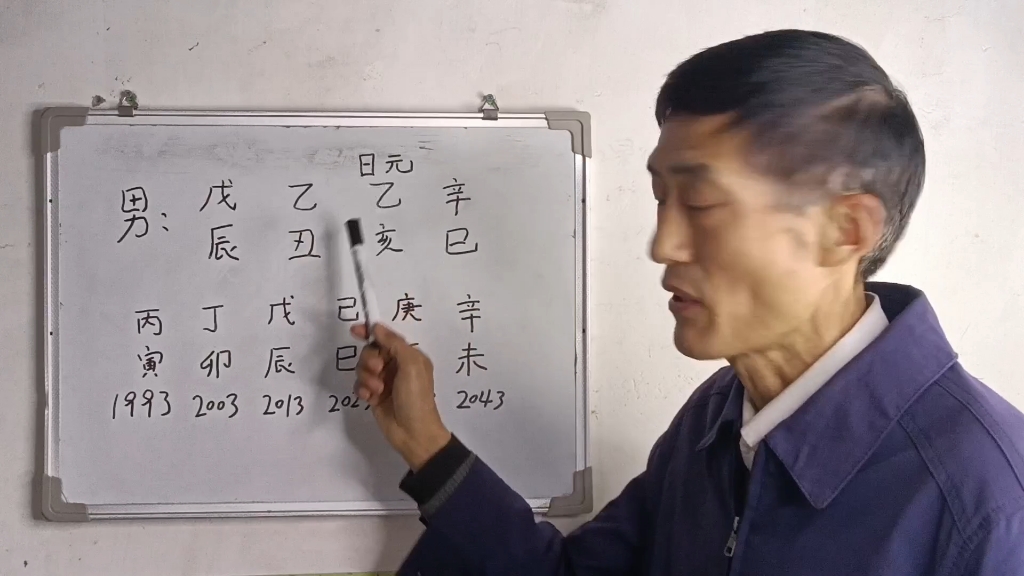 日元
男: 戊 乙 乙 辛
辰 丑 亥 巳
丙 丁 戊 己 庚 辛
寅 卯 辰 巳 未
1993 2003 2013 2043